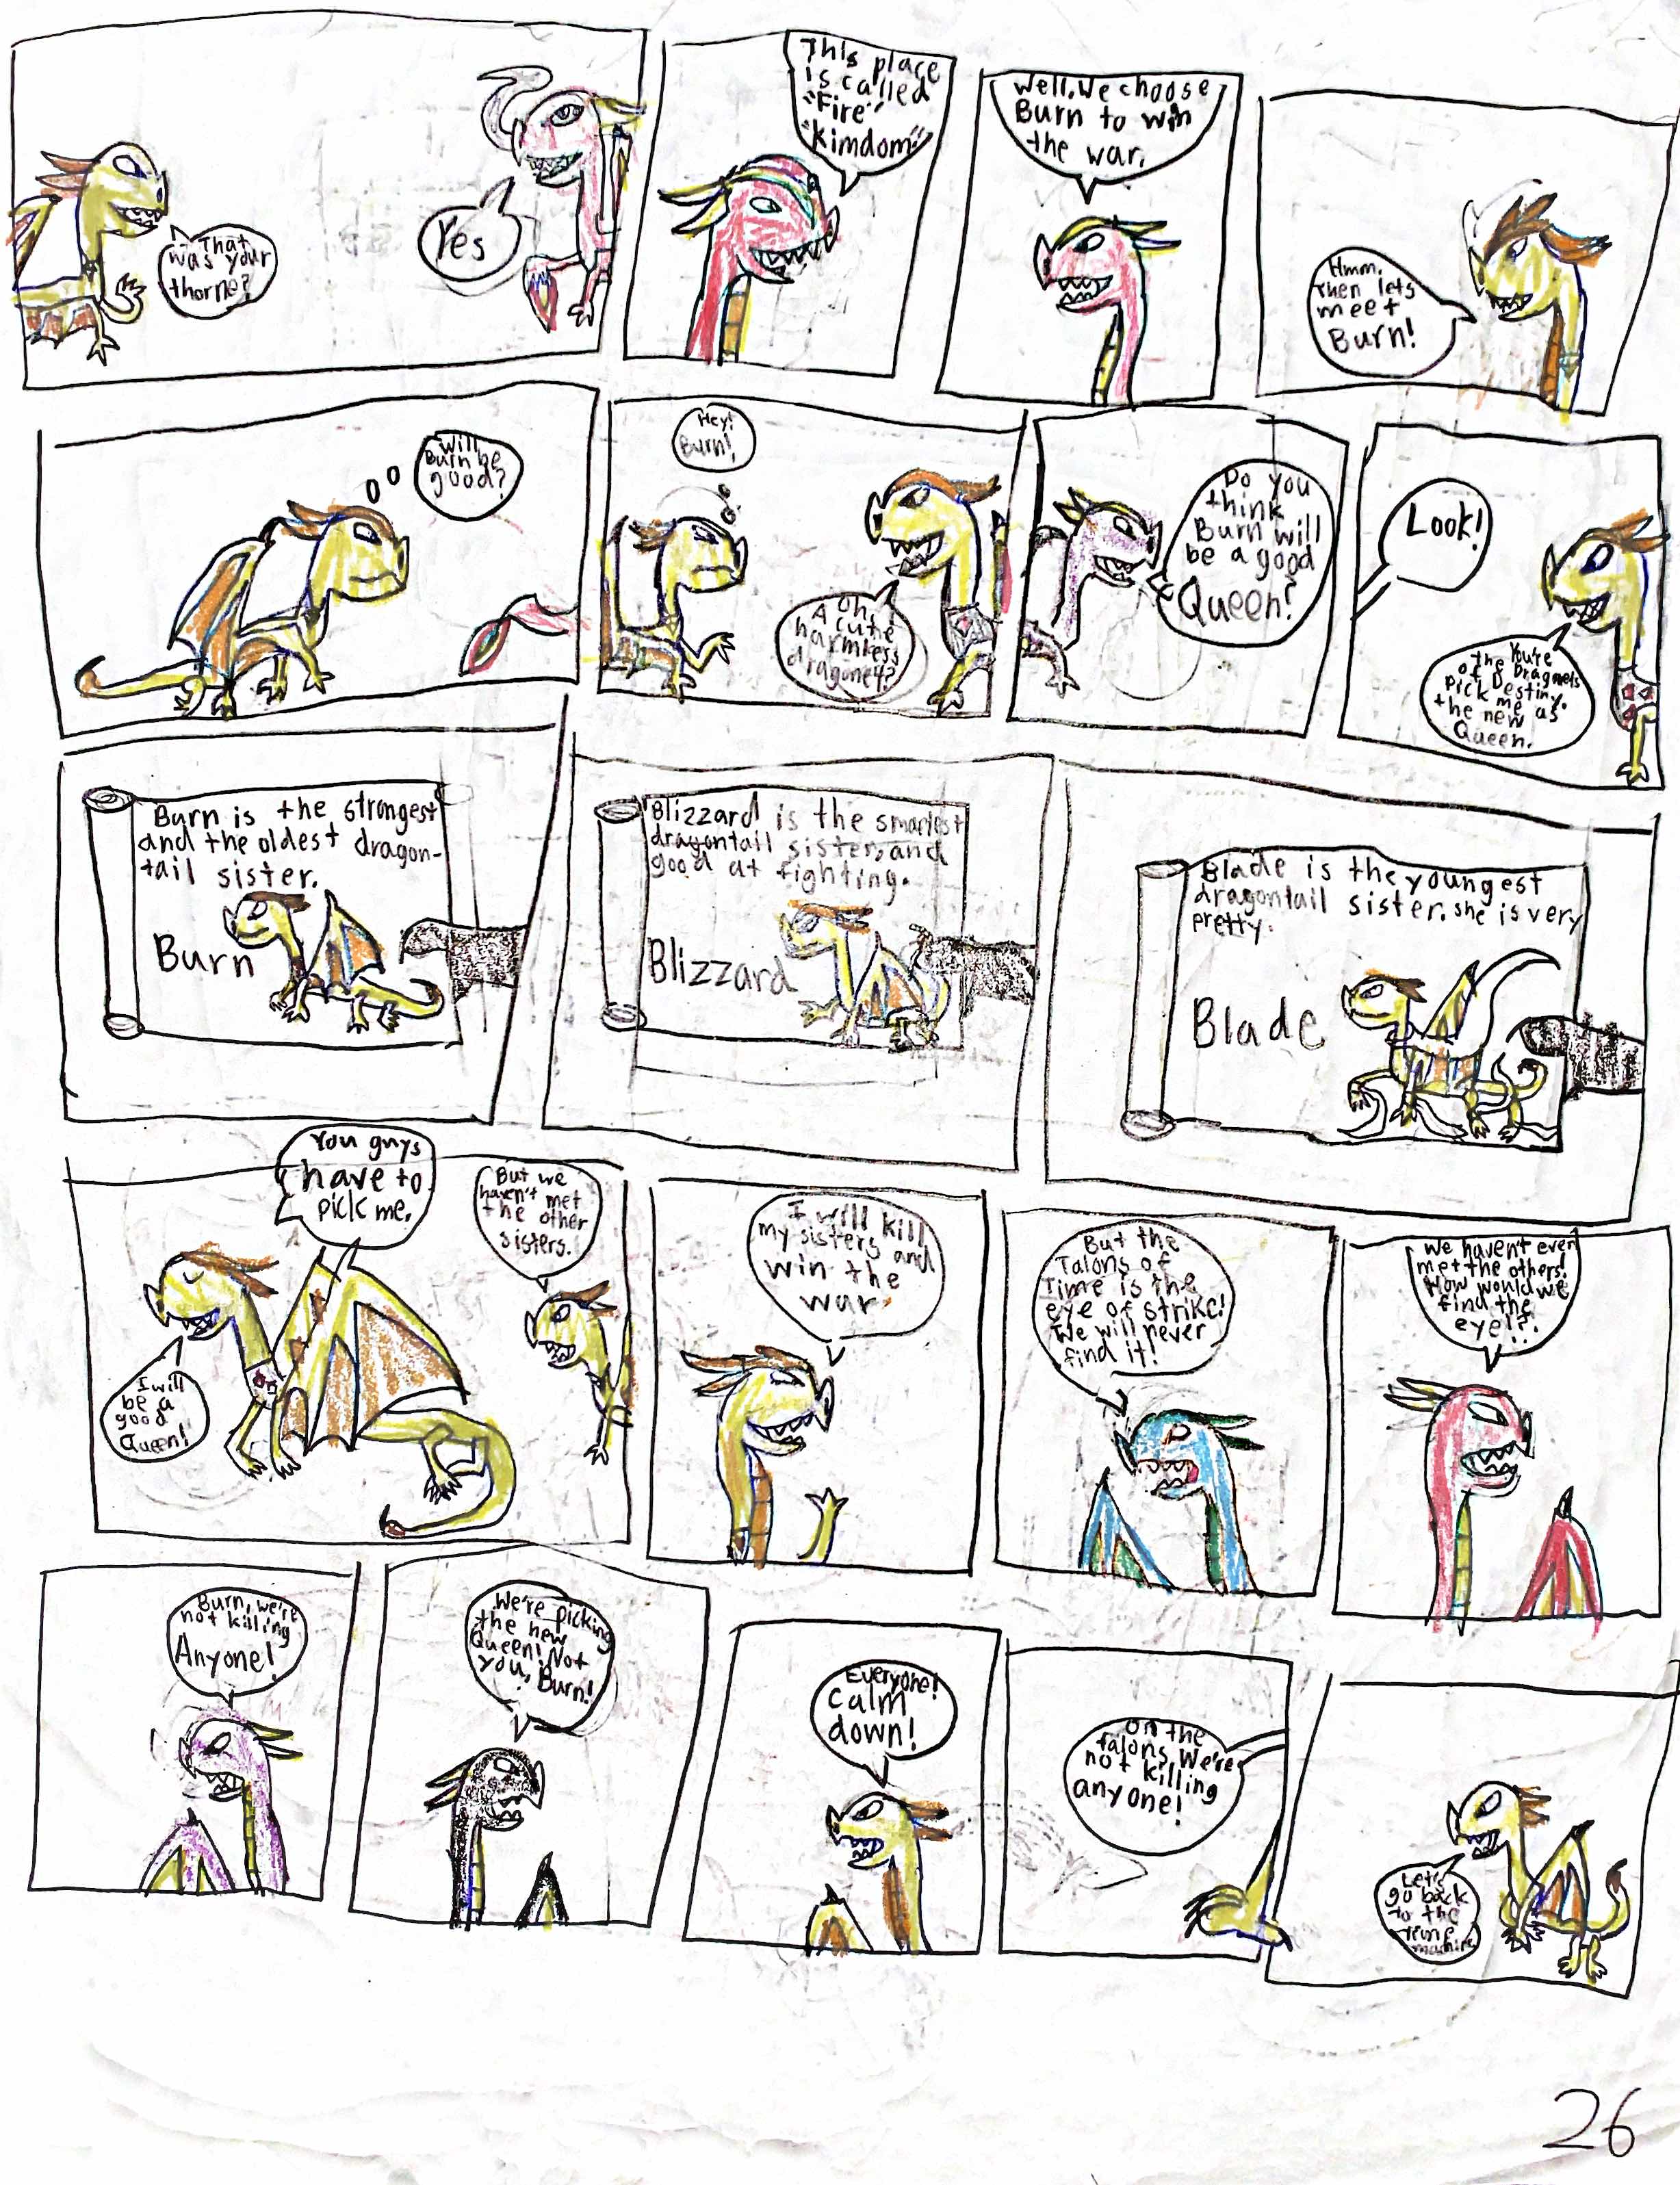 That
was your
thorne?
Yes
This place
is called
"Fire"
"Kimdom"
Well, We choose
Burn to win
the war.
Hmm.
Then lets
meet
Burn!
Will
Burn be
good?
Hey!
Burn!
Oh,
A cute
harmless
dragonet?
Do you
think
Burn will
be a good
Queen?
Look!
You're
the Dragnets
of Destiny.
Pick me as
the new
Queen.
Burn is the strongest
and the oldest dragon-
tail sister.
Burn
Blizzard is the smartest
dragontail sister, and
good at fighting.
Blizzard
Blade is the youngest
dragontail sister. she is very
pretty.
Blade
You guys
have to
pick me.
I will
be a
good
Queen!
But we
haven't met
the other
sisters.
I will kill
my sisters and
win the
war.
But the
Talons of
Time is the
eye of strike!
We will never
find it!
We haven't even
met the others!
How would we
find the
eye!?..
Burn, we're
not killing
Anyone!
We're picking
the new
Queen! Not
you, Burn!
Everyone!
Calm
down!
On the
talons, We're
not killing
anyone!
Let's
go back
to the
time
machine
26